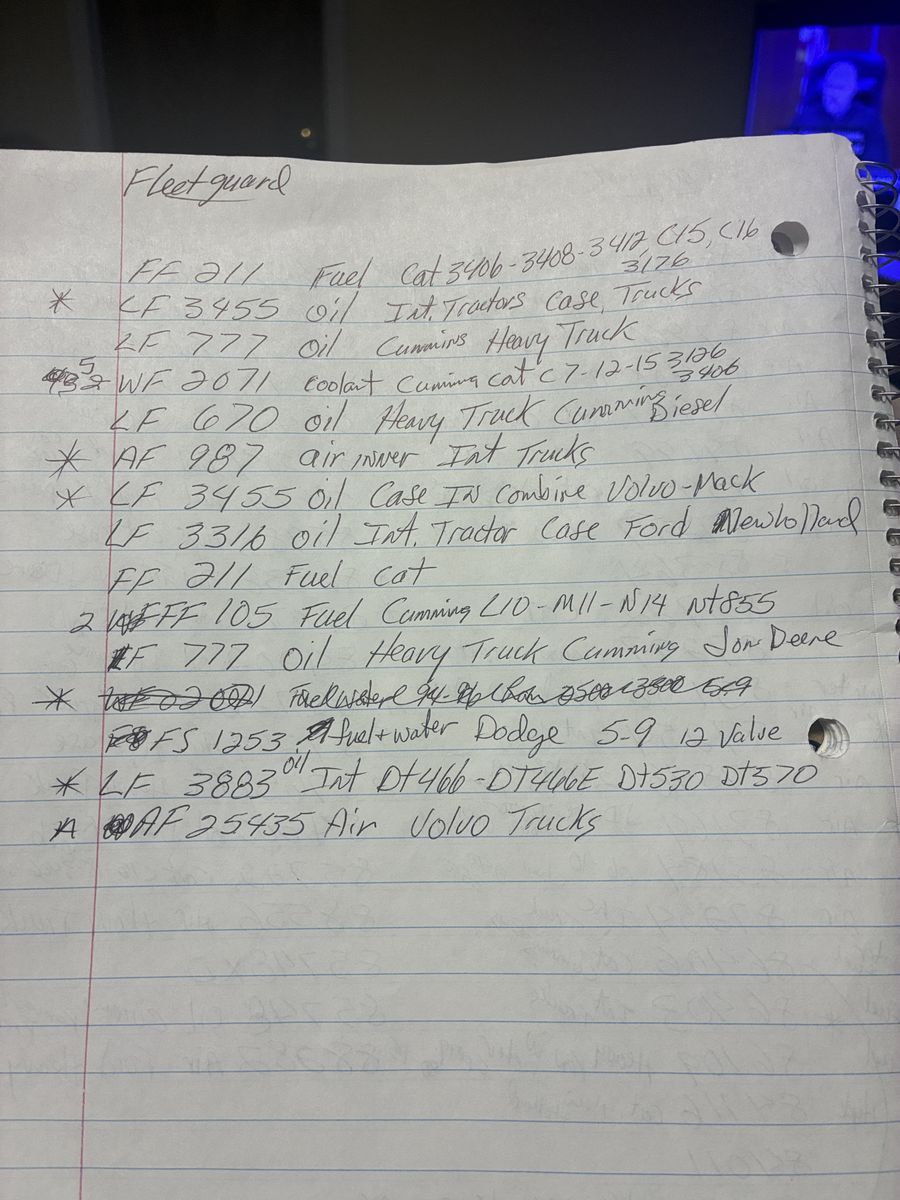 Fleetguard
FF 211 Fuel Cat 3406-3408-3412, C15, C16
3176
* LF 3455 oil Int. Tractors Case, Trucks
LF 777 oil Cummins Heavy Truck
5 WF 2071 coolant Cumming Cat C7-12-15 3126
3406
LF 670 oil Heavy Truck Cumming Diesel
* AF 987 air inner Int Trucks
* LF 3455 oil Case IN Combine Volvo-Mack
LF 3316 oil Int. Tractor Case Ford Newholland
FF 211 Fuel Cat
2 FF 105 Fuel Cumming L10-M11-N14 Nt855
LF 777 oil Heavy Truck Cumming Jon Deere
*
FS 1253 fuel+water Dodge 5-9 12 Valve
* LF 3883 oil Int Dt466-DT466E Dt530 Dt570
* AF 25435 Air Volvo Trucks